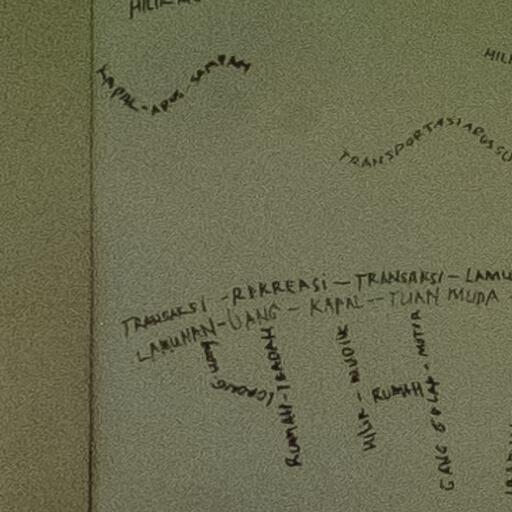 HILIR
KAPAL-ARUS-SAMPAN
TRANSPORTASI ARUS SU
TRANSAKSI-REKREASI-TRANSAKSI-LAMU
LAMUNAN-UANG-KAPAL-TUAN MUDA-
LORONG
RUMAH-IBADAH
HILIR-MUDIK
RUMAH
GANG GELAP-MOTOR